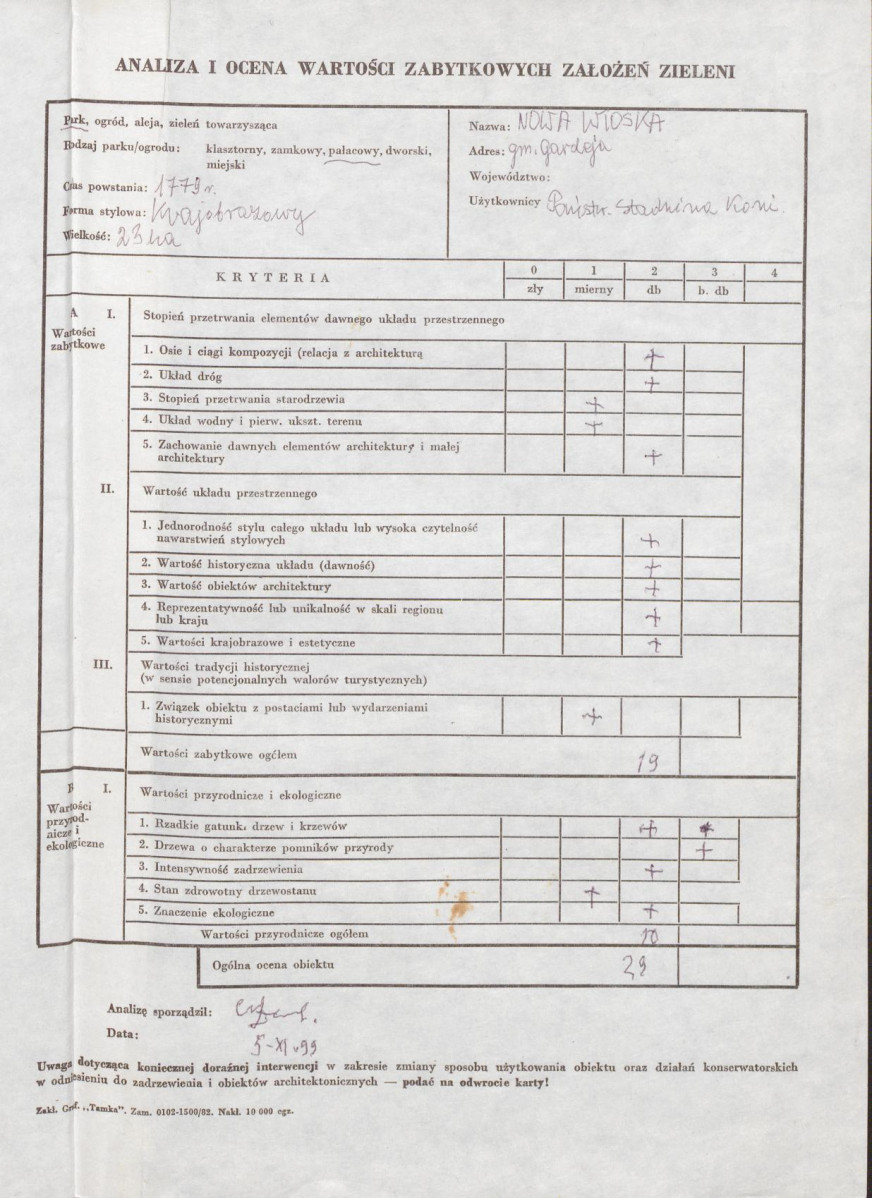 ANALIZA I OCENA WARTOŚCI ZABYTKOWYCH ZAŁOŻEŃ ZIELENI
Park, ogród, aleja, zieleń towarzysząca
Rodzaj parku/ogrodu: klasztorny, zamkowy, pałacowy, dworski,
miejski
Czas powstania: 1779 r.
Forma stylowa: Krajobrazowy
Wielkość: 23 ha
Nazwa: NOWA WIOSKA
Adres: gm. Gardeja
Województwo:
Użytkownicy Państw. Stadnina Koni.
KRYTERIA 0 1 2 3 4
zły mierny db b. db
A I. Stopień przetrwania elementów dawnego układu przestrzennego
Wartości
zabytkowe
1. Osie i ciągi kompozycji (relacja z architekturą +
2. Układ dróg +
3. Stopień przetrwania starodrzewia +
4. Układ wodny i pierw. ukszt. terenu +
5. Zachowanie dawnych elementów architektury i małej
architektury +
II. Wartość układu przestrzennego
1. Jednorodność stylu całego układu lub wysoka czytelność
nawarstwień stylowych +
2. Wartość historyczna układu (dawność) +
3. Wartość obiektów architektury +
4. Reprezentatywność lub unikalność w skali regionu
lub kraju +
5. Wartości krajobrazowe i estetyczne +
III. Wartości tradycji historycznej
(w sensie potencjonalnych walorów turystycznych)
1. Związek obiektu z postaciami lub wydarzeniami
historycznymi +
Wartości zabytkowe ogółem 19
B I. Wartości przyrodnicze i ekologiczne
Wartości
przyrod-
nicze i
ekologiczne
1. Rzadkie gatunki drzew i krzewów +
2. Drzewa o charakterze pomników przyrody +
3. Intensywność zadrzewienia +
4. Stan zdrowotny drzewostanu +
5. Znaczenie ekologiczne +
Wartości przyrodnicze ogółem 10
Ogólna ocena obiektu 29
Analizę sporządził:
Data: 5-XI.99
Uwaga dotycząca koniecznej doraźnej interwencji w zakresie zmiany sposobu użytkowania obiektu oraz działań konserwatorskich
w odniesieniu do zadrzewienia i obiektów architektonicznych — podać na odwrocie karty!
Zakł. Graf. „Tamka". Zam. 0102-1500/82. Nakł. 10 000 egz.